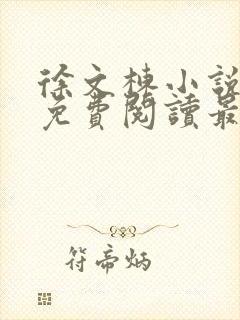 徐文棟小說
免費閱讀最
符帝炳